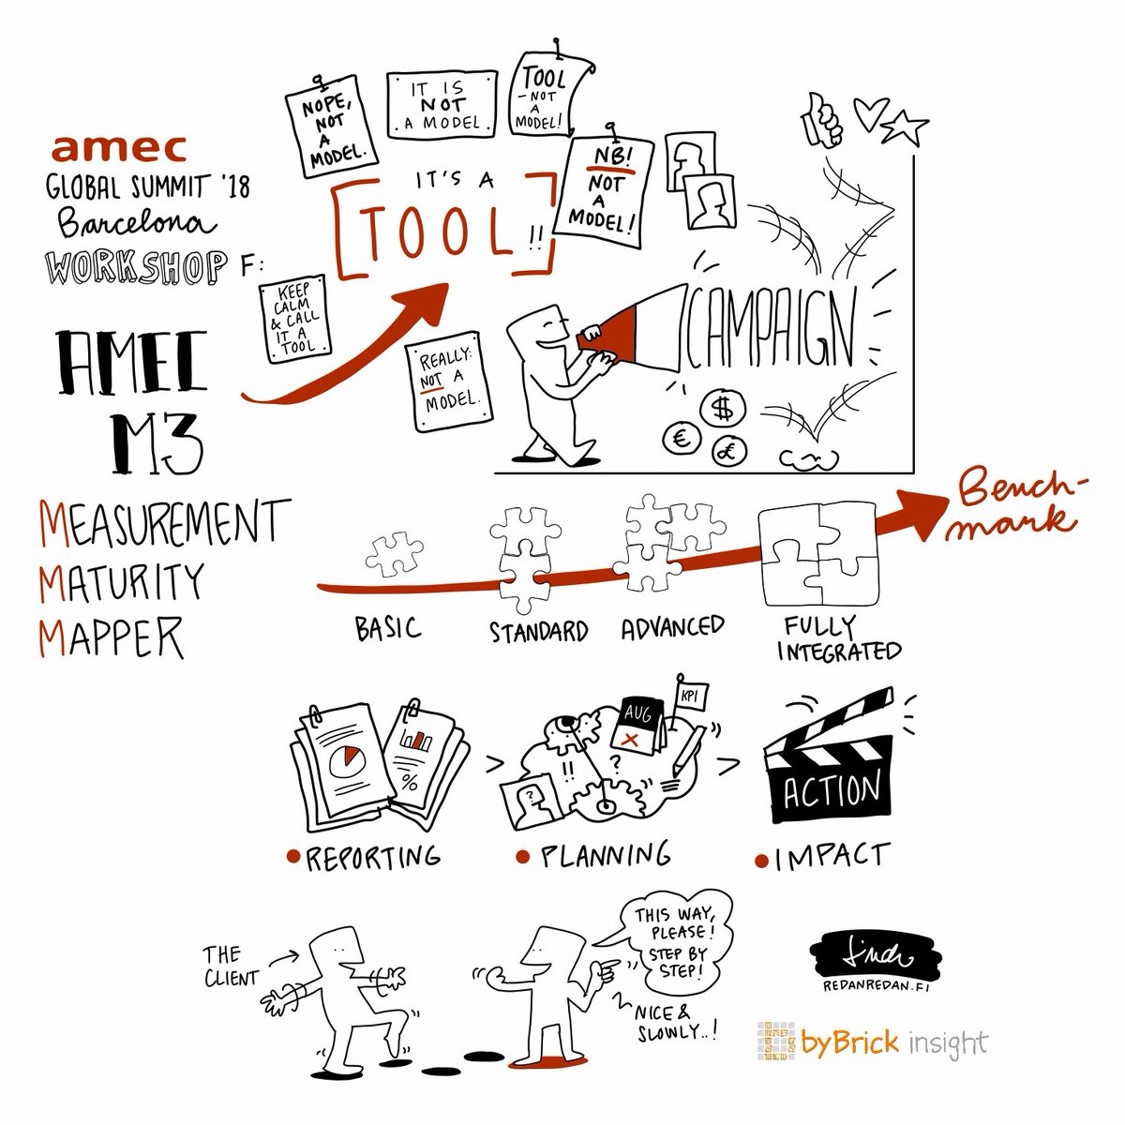 amec
GLOBAL SUMMIT '18
Barcelona
WORKSHOP F:
AMEC
M3
MEASUREMENT
MATURITY
MAPPER
NOPE,
NOT
A
MODEL.
IT IS
NOT
A MODEL.
TOOL
- NOT
A
MODEL!
NB!
NOT
A
MODEL!
IT'S A
TOOL!!
KEEP
CALM
& CALL
IT A
TOOL
REALLY:
NOT A
MODEL.
CAMPAIGN
$
€
£
Bench-
mark
BASIC
STANDARD
ADVANCED
FULLY
INTEGRATED
%
>
AUG
X
KPI
!!
?
?
>
ACTION
• REPORTING
• PLANNING
• IMPACT
THE
CLIENT
THIS WAY,
PLEASE!
STEP BY
STEP!
NICE &
SLOWLY..!
REDANREDAN.FI
byBrick insight